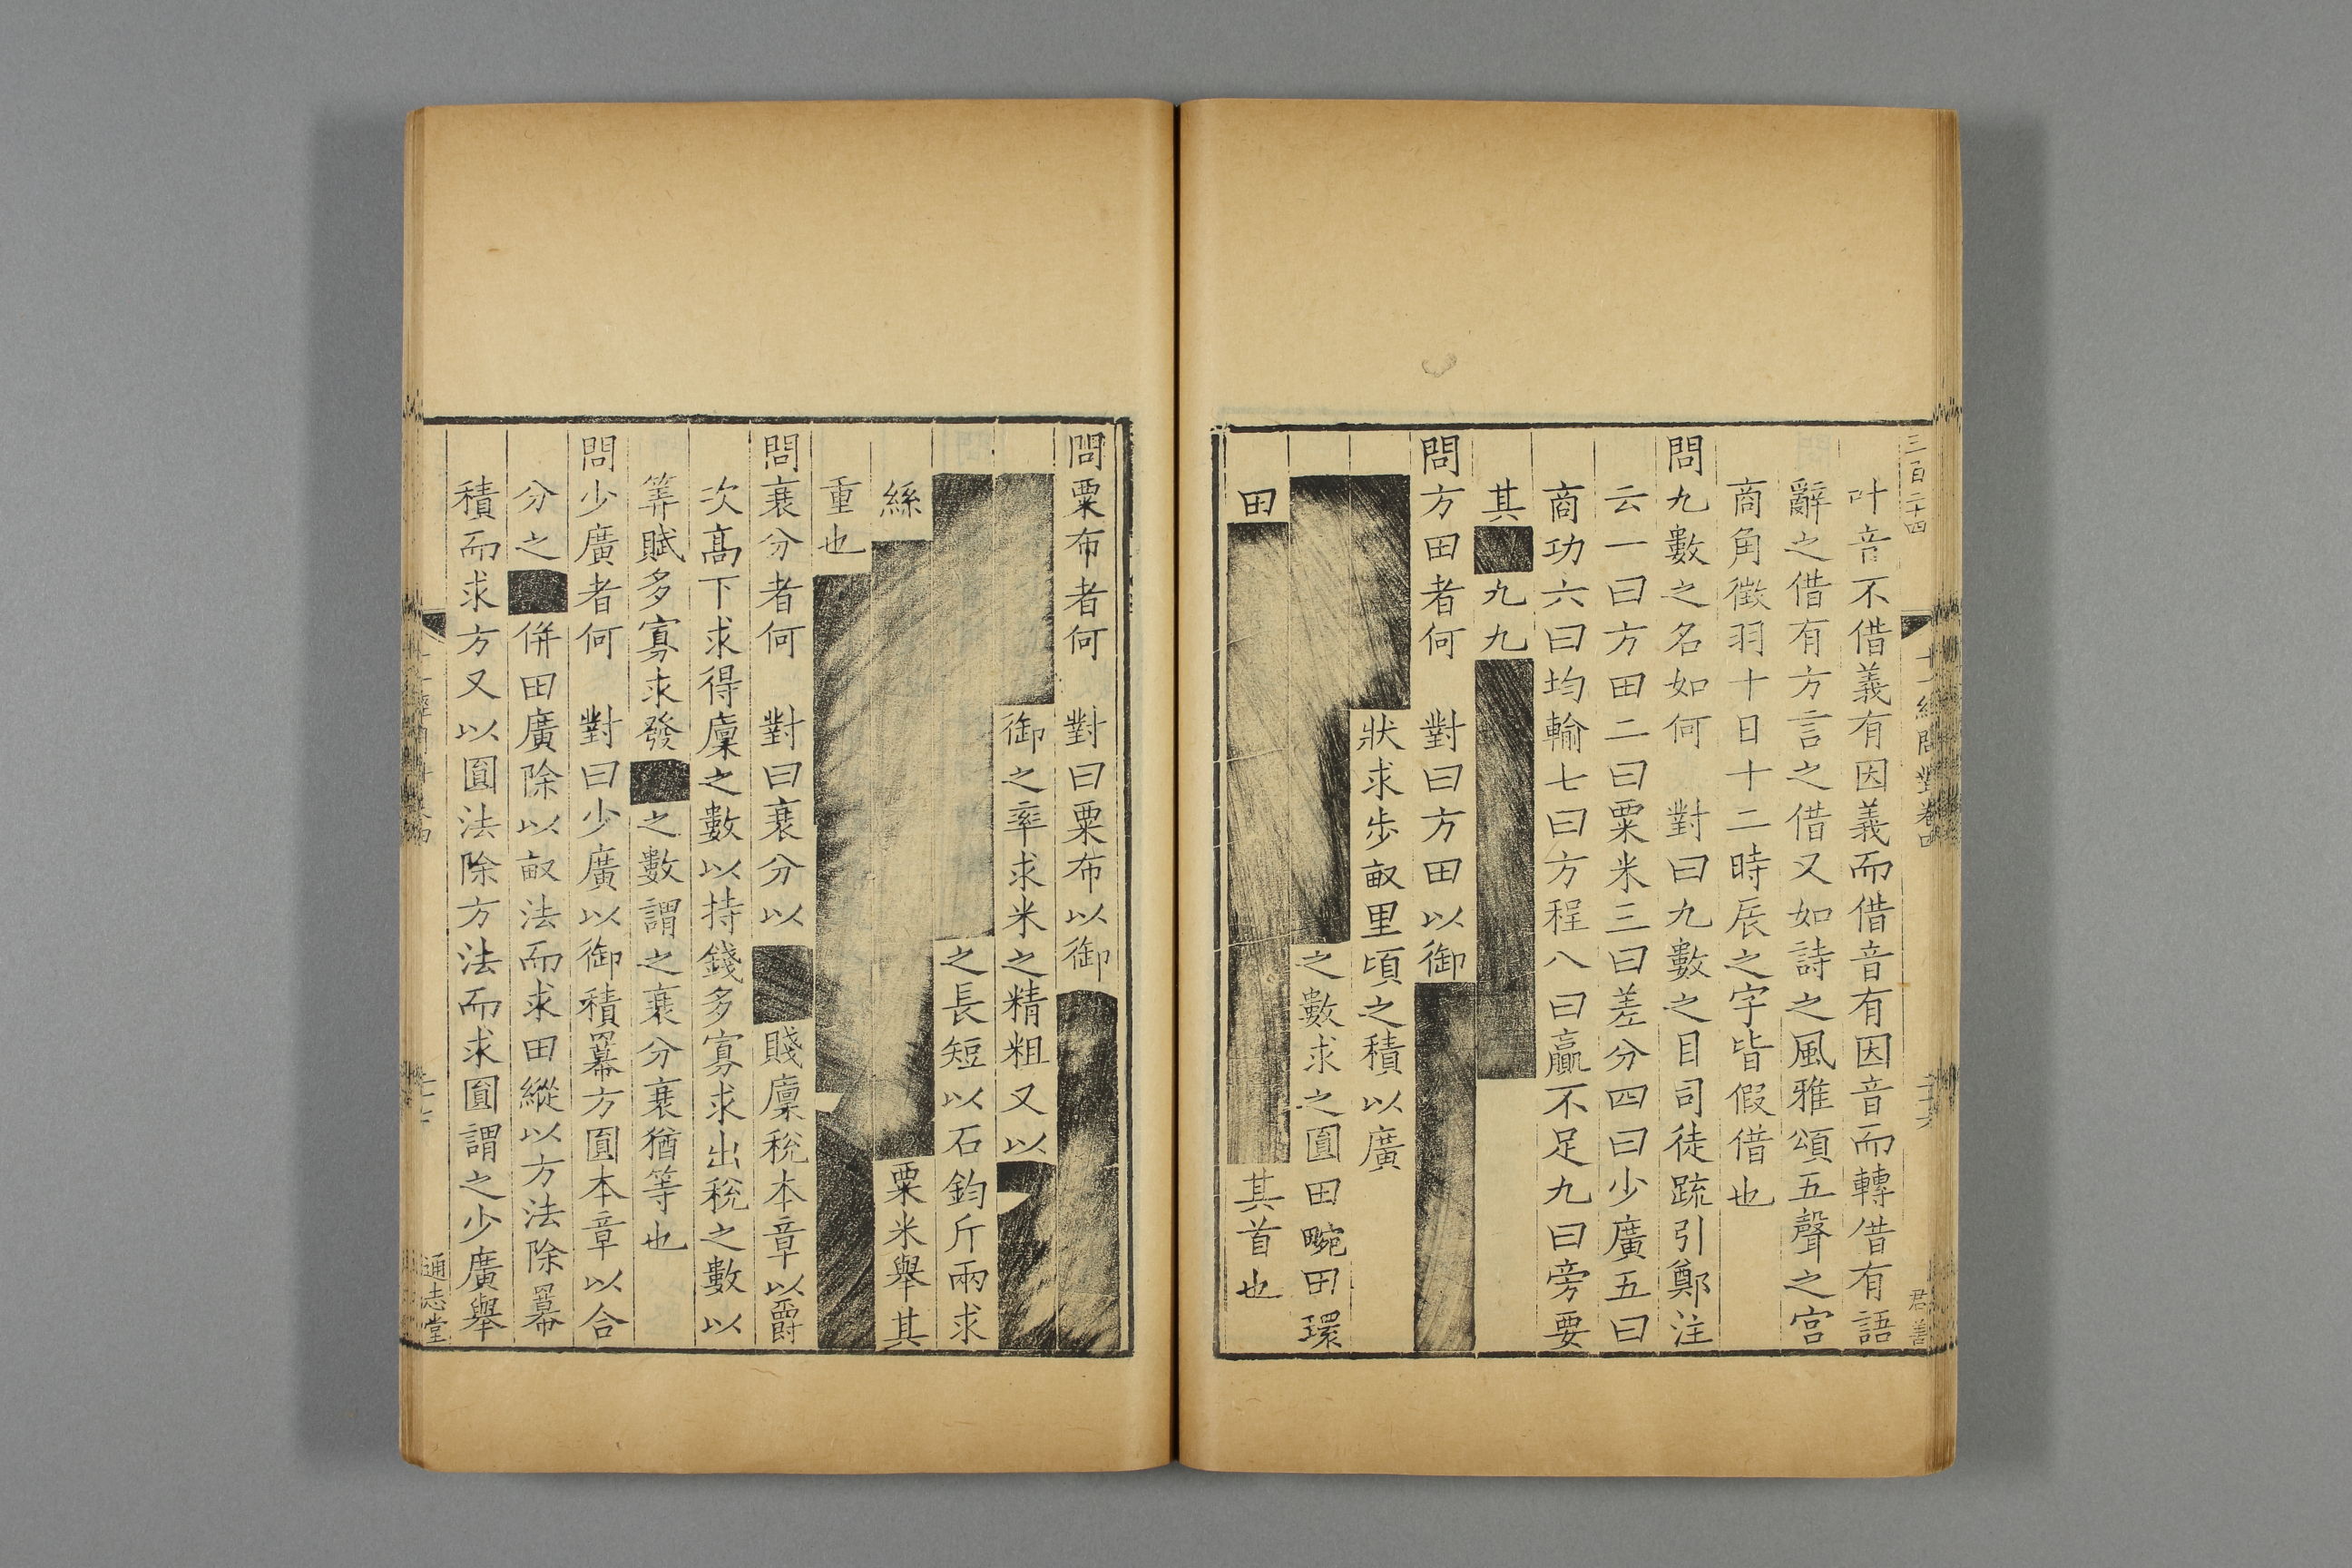 三百二十四
十一經問對卷四
君善
叶音不借義有因義而借音有因音而轉借有語
辭之借有方言之借又如詩之風雅頌五聲之宮
商角徵羽十日十二時辰之字皆假借也
問九數之名如何 對曰九數之目司徒疏引鄭注
云一曰方田二曰粟米三曰差分四曰少廣五曰
商功六曰均輸七曰方程八曰贏不足九曰旁要
其 九九
問方田者何 對曰方田以御
狀求步畝里頃之積以廣
之數求之圓田畹田環
田 其首也
問粟布者何 對曰粟布以御
御之率求米之精粗又以
之長短以石鈞斤兩求
絲 粟米舉其
重也
問衰分者何 對曰衰分以 賤廩稅本章以爵
次高下求得廩之數以持錢多寡求出稅之數以
筭賦多寡求發 之數謂之衰分衰猶等也
問少廣者何 對曰少廣以御積冪方圓本章以合
分之 併田廣除以畝法而求田縱以方法除冪
積而求方又以圓法除方法而求圓謂之少廣舉
通志堂